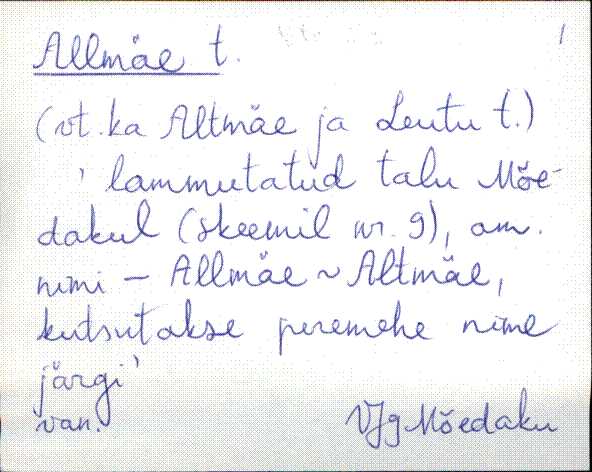 Allmäe t. 1
(vt. ka Altmäe ja Leutu t.)
' lammutatud talu Mõe-
dakul (skeemil nr. 9), am.
nimi – Allmäe ~ Altmäe,
kutsutakse peremehe nime
järgi'
van. VJg Mõedaku